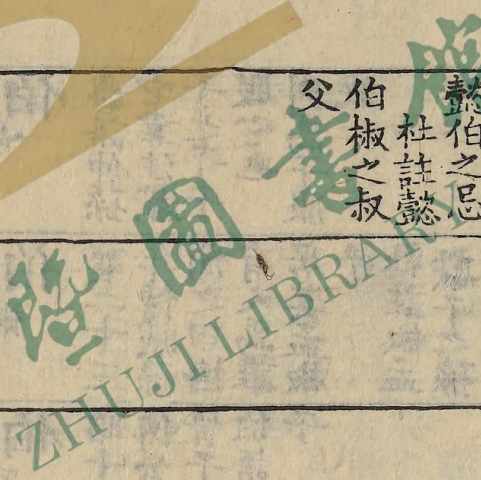 懿伯之忌
杜註懿
伯椒之叔
父
暨圖書
ZHUJI LIBRARY